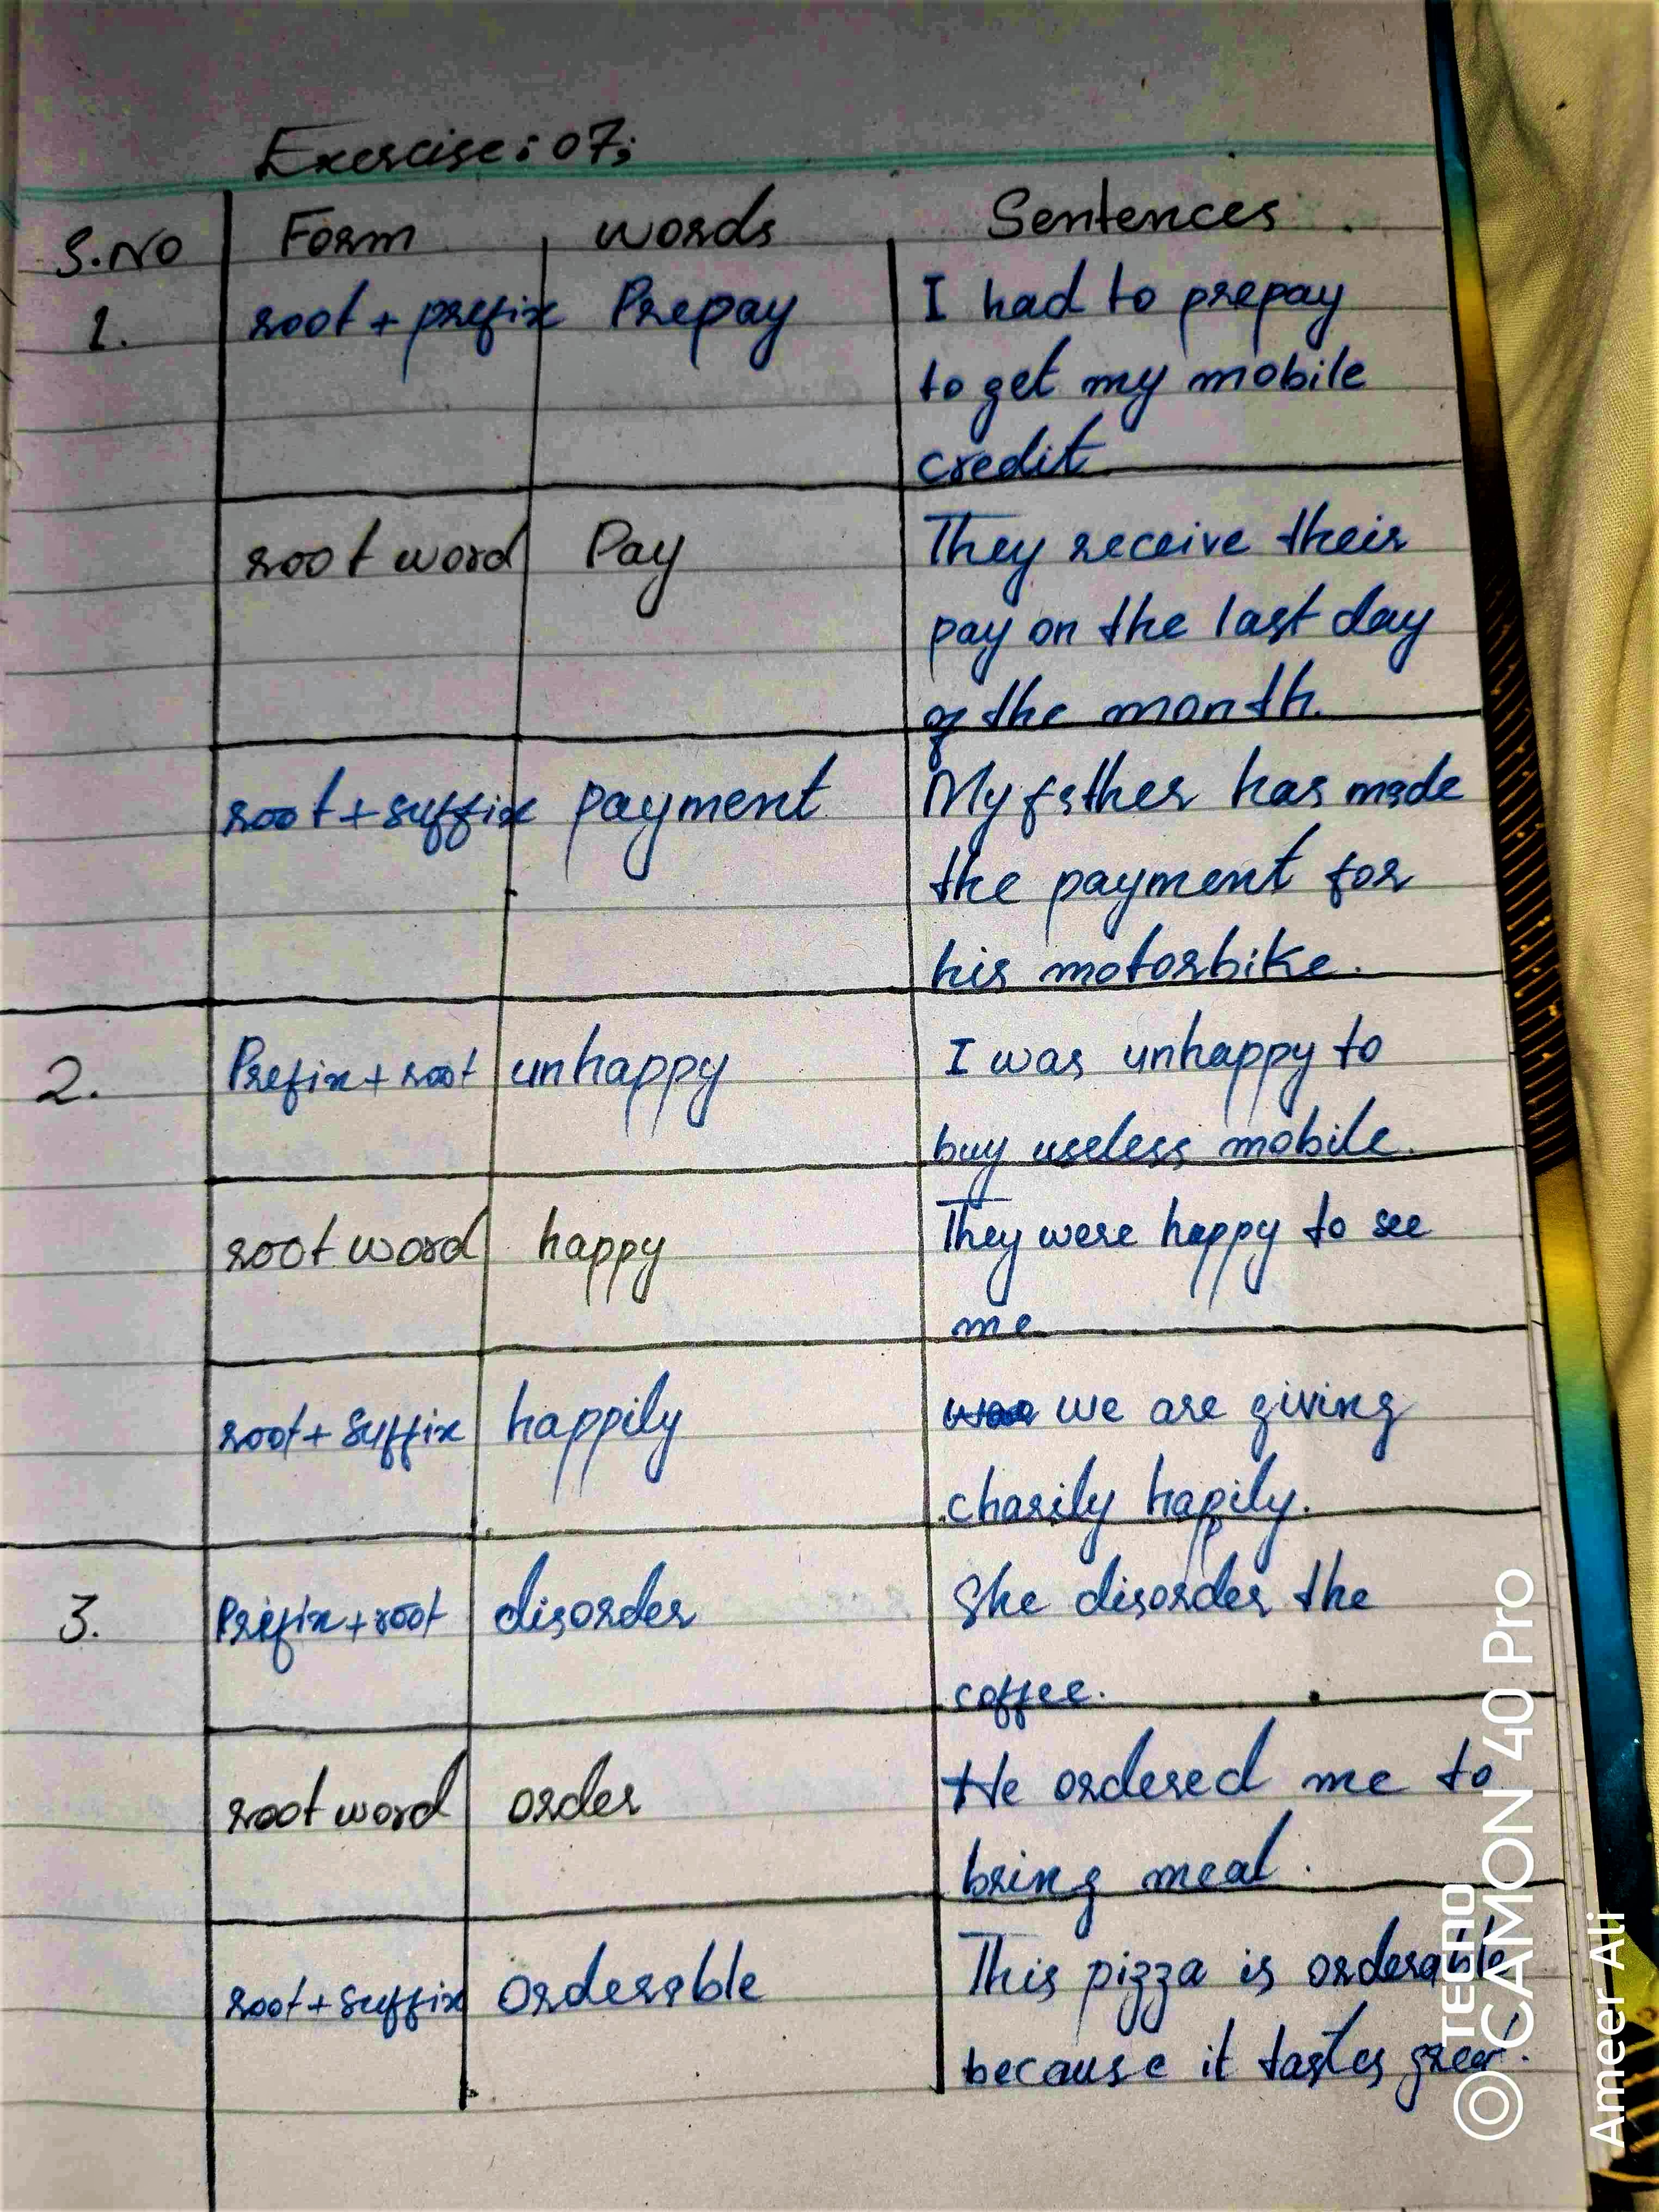 Exercise: 07;
S.No Form words Sentences
1. root + prefix Prepay I had to prepay
to get my mobile
credit
root word Pay They receive their
pay on the last day
of the month.
root + suffix payment My father has made
the payment for
his motorbike.
2. Prefix + root unhappy I was unhappy to
buy useless mobile.
root word happy They were happy to see
me
root + suffix happily we are giving
charily hapily.
3. Prefix + root disorder She disorder the
coffee.
root word order He ordered me to
bring meal.
root + suffix orderable This pizza is orderable
because it tastes
TECNO
CAMON 40 Pro
Ameer Ali